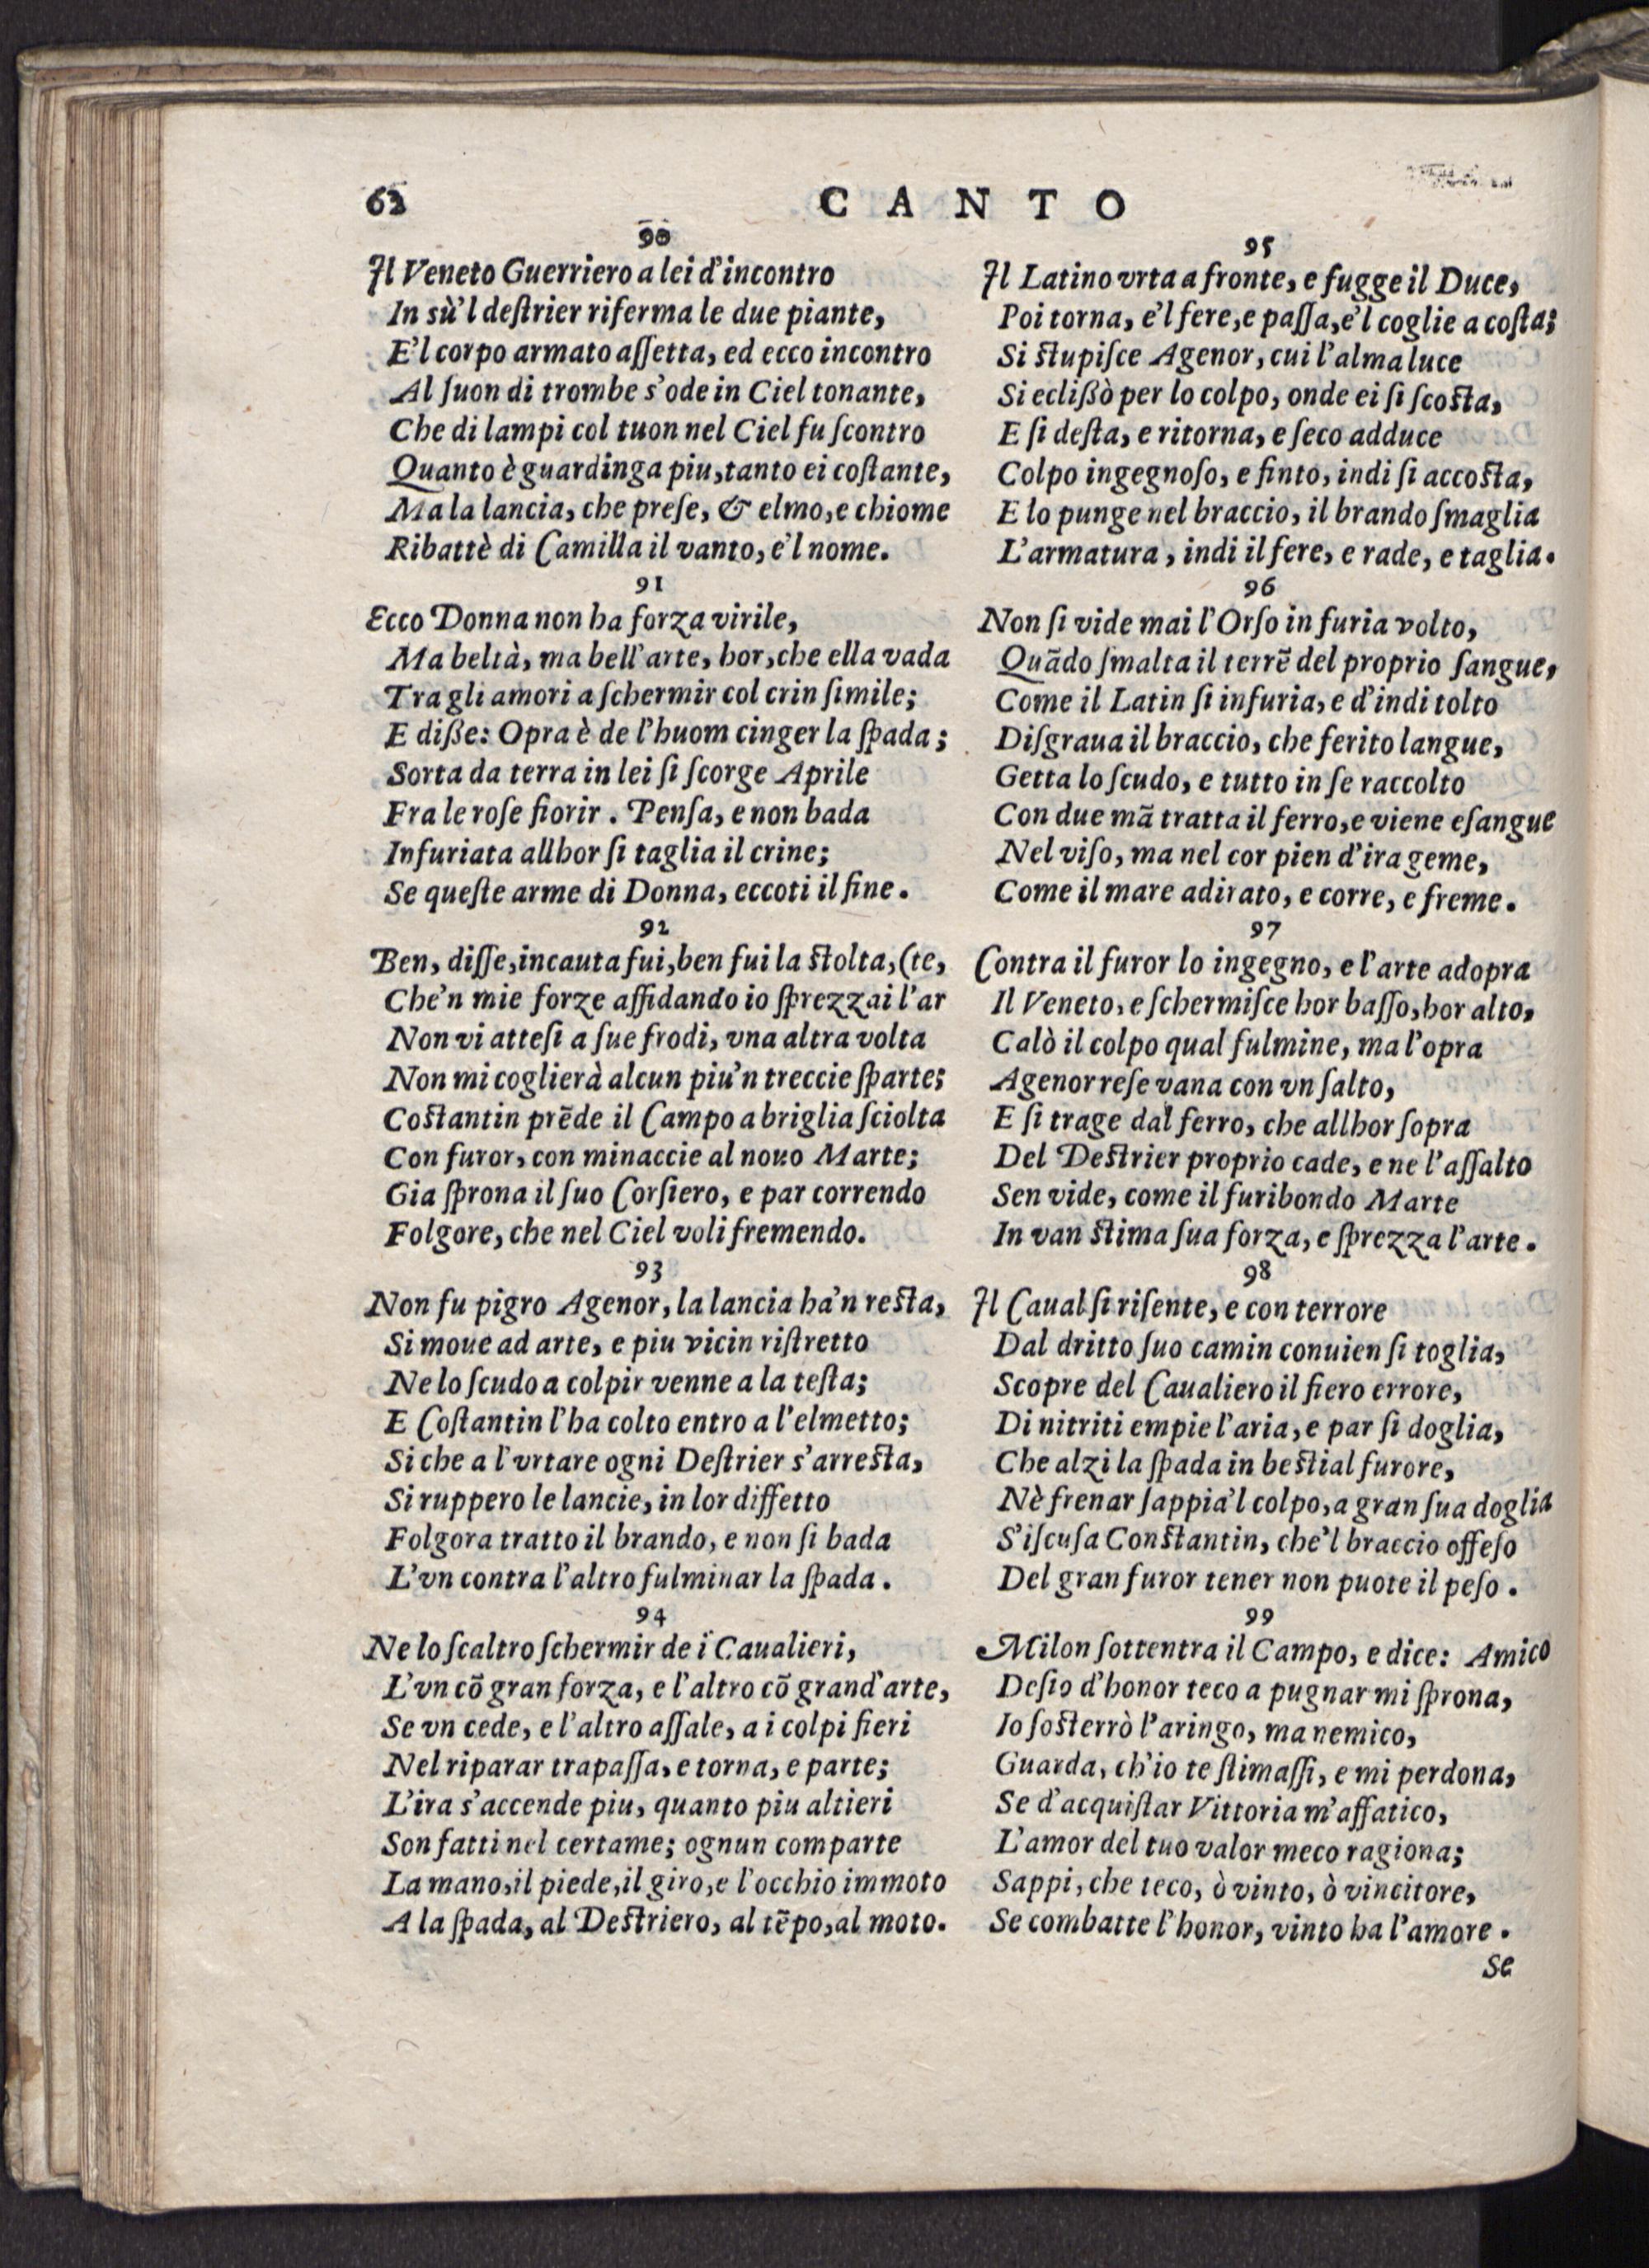 62
CANTO
90
Il Veneto Guerriero a lei d'incontro
In sù'l deſtrier riferma le due piante,
E'l corpo armato aſſetta, ed ecco incontro
Al ſuon di trombe s'ode in Ciel tonante,
Che di lampi col tuon nel Ciel fu ſcontro
Quanto è guardinga piu, tanto ei coſtante,
Ma la lancia, che preſe, & elmo, e chiome
Ribattè di Camilla il vanto, e'l nome.
91
Ecco Donna non ha forza virile,
Ma beltà, ma bell'arte, hor, che ella vada
Tra gli amori a ſchermir col crin ſimile;
E diße: Opra è de l'huom cinger la ſpada;
Sorta da terra in lei ſi ſcorge Aprile
Fra le roſe fiorir. Penſa, e non bada
Infuriata allhor ſi taglia il crine;
Se queſte arme di Donna, eccoti il fine.
92
Ben, diſſe, incauta fui, ben fui la ſtolta, (te,
Che'n mie forze affidando io ſprezzai l'ar
Non vi atteſi a ſue frodi, vna altra volta
Non mi coglierà alcun piu'n treccie ſparte;
Coſtantin prẽde il Campo a briglia ſciolta
Con furor, con minaccie al nouo Marte;
Gia ſprona il ſuo Corſiero, e par correndo
Folgore, che nel Ciel voli fremendo.
93
Non fu pigro Agenor, la lancia ha'n reſta,
Si moue ad arte, e piu vicin riſtretto
Ne lo ſcudo a colpir venne a la teſta;
E Coſtantin l'ha colto entro a l'elmetto;
Si che a l'vrtare ogni Deſtrier s'arreſta,
Si ruppero le lancie, in lor diffetto
Folgora tratto il brando, e non ſi bada
L'vn contra l'altro fulminar la ſpada.
94
Ne lo ſcaltro ſchermir de i Caualieri,
L'vn cõ gran forza, e l'altro cõ grand'arte,
Se vn cede, e l'altro aſſale, a i colpi fieri
Nel riparar trapaſſa, e torna, e parte;
L'ira s'accende piu, quanto piu altieri
Son fatti nel certame; ognun comparte
La mano, il piede, il giro, e l'occhio immoto
A la ſpada, al Deſtriero, al tẽpo, al moto.
95
Il Latino vrta a fronte, e fugge il Duce,
Poi torna, e'l fere, e paſſa, e'l coglie a coſta;
Si ſtupiſce Agenor, cui l'alma luce
Si eclißò per lo colpo, onde ei ſi ſcoſta,
E ſi deſta, e ritorna, e ſeco adduce
Colpo ingegnoſo, e finto, indi ſi accoſta,
E lo punge nel braccio, il brando ſmaglia
L'armatura, indi il fere, e rade, e taglia.
96
Non ſi vide mai l'Orſo in furia volto,
Quãdo ſmalta il terrẽ del proprio ſangue,
Come il Latin ſi infuria, e d'indi tolto
Diſgraua il braccio, che ferito langue,
Getta lo ſcudo, e tutto in ſe raccolto
Con due mã tratta il ferro, e viene eſangue
Nel viſo, ma nel cor pien d'ira geme,
Come il mare adirato, e corre, e freme.
97
Contra il furor lo ingegno, e l'arte adopra
Il Veneto, e ſchermiſce hor baſſo, hor alto,
Calò il colpo qual fulmine, ma l'opra
Agenor reſe vana con vn ſalto,
E ſi trage dal ferro, che allhor ſopra
Del Deſtrier proprio cade, e ne l'aſſalto
Sen vide, come il furibondo Marte
In van ſtima ſua forza, e ſprezza l'arte.
98
Il Caual ſi riſente, e con terrore
Dal dritto ſuo camin conuien ſi toglia,
Scopre del Caualiero il fiero errore,
Di nitriti empie l'aria, e par ſi doglia,
Che alzi la ſpada in beſtial furore,
Nè frenar ſappia'l colpo, a gran ſua doglia
S'iſcuſa Conſtantin, che'l braccio offeſo
Del gran furor tener non puote il peſo.
99
Milon ſottentra il Campo, e dice: Amico
Deſio d'honor teco a pugnar mi ſprona,
Io ſoſterrò l'aringo, ma nemico,
Guarda, ch'io te ſtimaſſi, e mi perdona,
Se d'acquiſtar Vittoria m'affatico,
L'amor del tuo valor meco ragiona;
Sappi, che teco, ò vinto, ò vincitore,
Se combatte l'honor, vinto ha l'amore.
Se